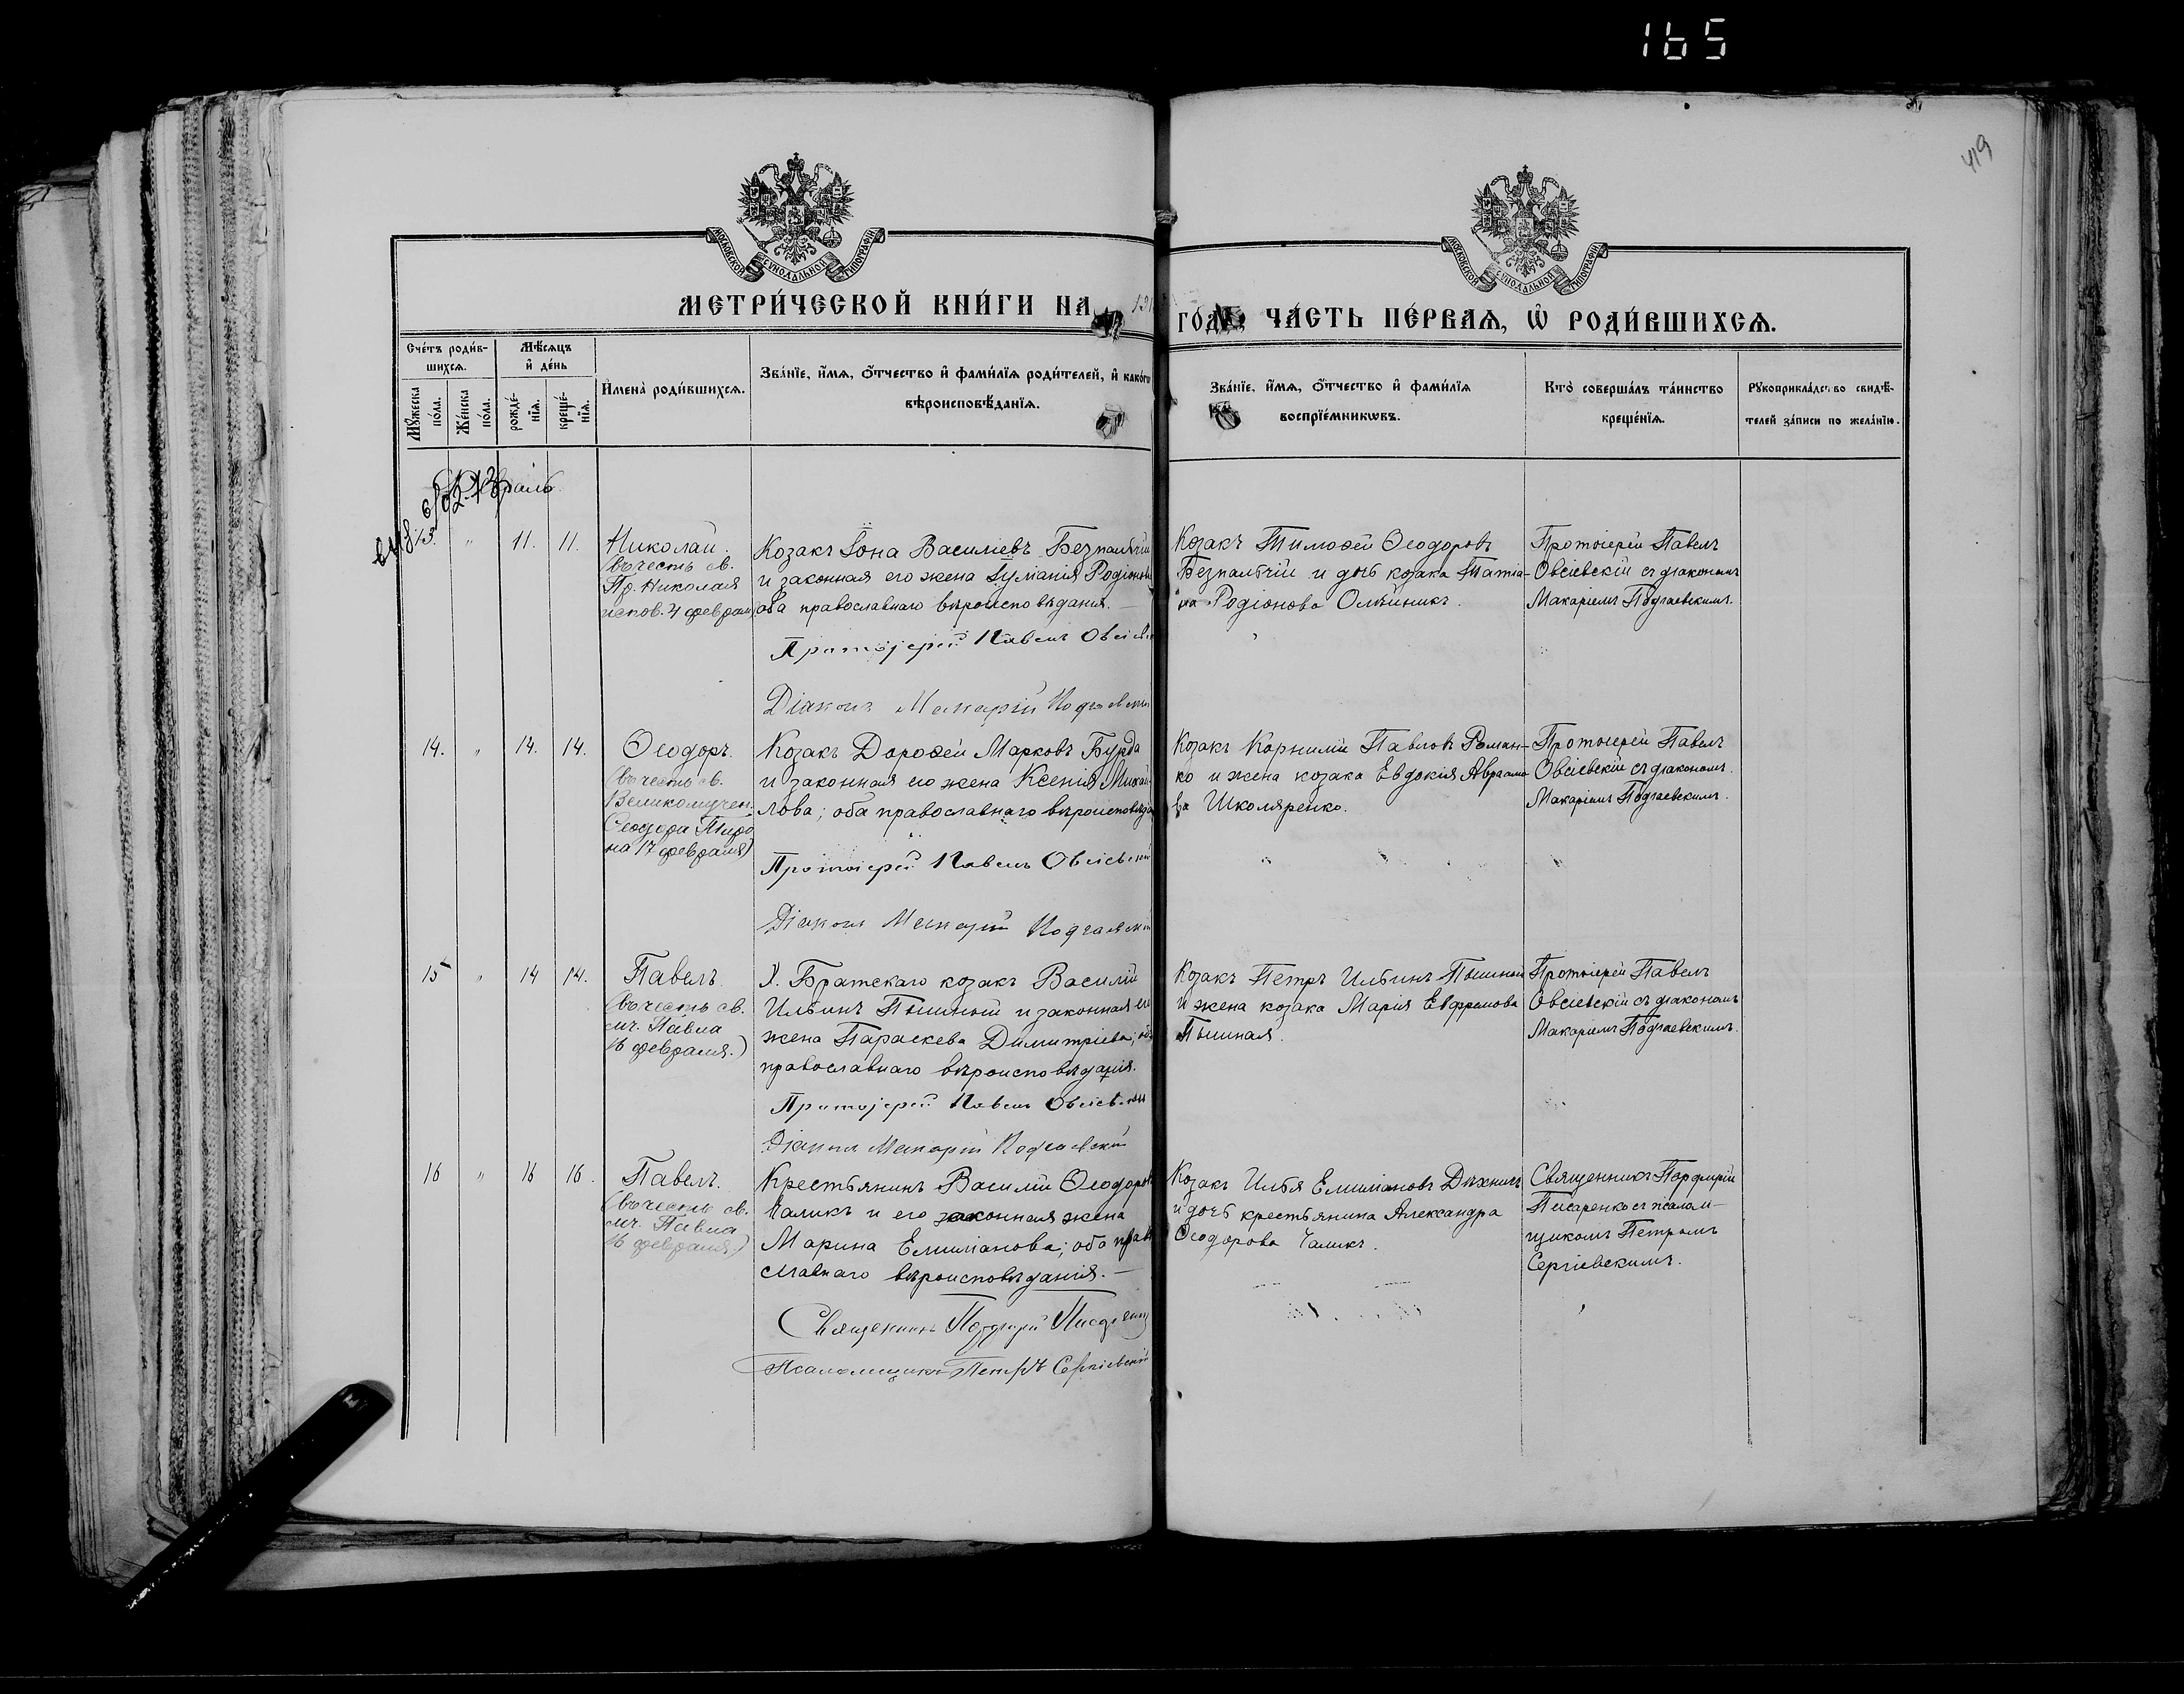 165
419
МОСКОВСКОЙ СѴНОДАЛЬНОЙ ТИПОГРАФІИ
МОСКОВСКОЙ СѴНОДАЛЬНОЙ ТИПОГРАФІИ
МЕТРИ́ЧЕСКОЙ КНИ́ГИ НА
ЧА́СТЬ ПЕ́РВАЯ, Ѡ РОДИ́ВШИХСЯ.
Сче́тъ роди́в-
шихся.
Мꙋ́жеска по́ла.
Же́нска по́ла.
Мѣ́сяцъ
и҆ де́нь
рожде́-
нїя.
креще́-
нїя.
И҆мена̀ роди́вшихся.
Зва́нїе, и҆́мя, ѻ҆́тчество и҆ фами́лїя роди́телей, и҆ како́гѡ
вѣроисповѣ́данїя.
Зва́нїе, и҆́мя, ѻ҆́тчество и҆ фами́лїя
воспрїе́мникѡвъ.
Кто̀ соверша́лъ та́инство
креще́нїя.
Рꙋкоприкла́дство свидѣ́-
телей за́писи по жела́нїю.
Февраль.
13. " 11. 11.
Николай.
(въ честь св.
Пр. Николая
испов. 4 февраля
Козакъ Іона Василіевъ Безпалчій
и законная его жена Іуліанія Родіонова
оба православнаго вѣроисповѣданія.
Протоіерей Павелъ Овсіевск
Діаконъ Макарій Подгаевскій
Козакъ Тимоѳей Ѳеодоровъ
Безпалчій и дочь козака Татіа-
на Родіонова Олѣйникъ.
Протоіерей Павелъ
Овсіевскій съ діакономъ
Макаріемъ Подгаевскимъ.
14. " 14. 14.
Ѳеодоръ.
(въ честь св.
Великомучен.
Ѳеодора Тиро
на 17 февраля)
Козакъ Дороѳей Марковъ Бурда
и законная его жена Ксенія Михай-
лова; оба православнаго вѣроисповѣда
Протоіерей Павелъ Овсіевскій
Діаконъ Макарій Подгаевскій
Козакъ Корнилій Павловъ Роман-
ко и жена козака Евдокія Авраамо
ва Школяренко.
Протоіерей Павелъ
Овсіевскій съ діакономъ
Макаріемъ Подгаевскимъ.
15 " 14 14.
Павелъ
(въ честь св.
мч. Павла
16 февраля.)
Х. Братскаго козакъ Василій
Ильинъ Пышный и законная его
жена Параскева Димитріева; оба
православнаго вѣроисповѣданія.
Протоіерей Павелъ Овсіевскій
Діаконъ Макарій Подгаевскій
Козакъ Петръ Ильинъ Пышный
и жена козака Марія Евфремова
Пышная.
Протоіерей Павелъ
Овсіевскій съ діакономъ
Макаріемъ Подгаевскимъ.
16 " 16 16.
Павелъ.
(въ честь св.
мч. Павла
16 февраля)
Крестьянинъ Василій Ѳеодоровъ
Чаликъ и его законная жена
Марина Емиліанова; оба право
славнаго вѣроисповѣданія.—
Священникъ Порфирій Писаренко
Псаломщикъ Петръ Сергіевскій
Козакъ Илья Емиліановъ Дѣхничъ
и дочь крестьянина Александра
Ѳеодорова Чаликъ.
Священникъ Порфирій
Писаренко съ псалом-
щикомъ Петромъ
Сергіевскимъ.